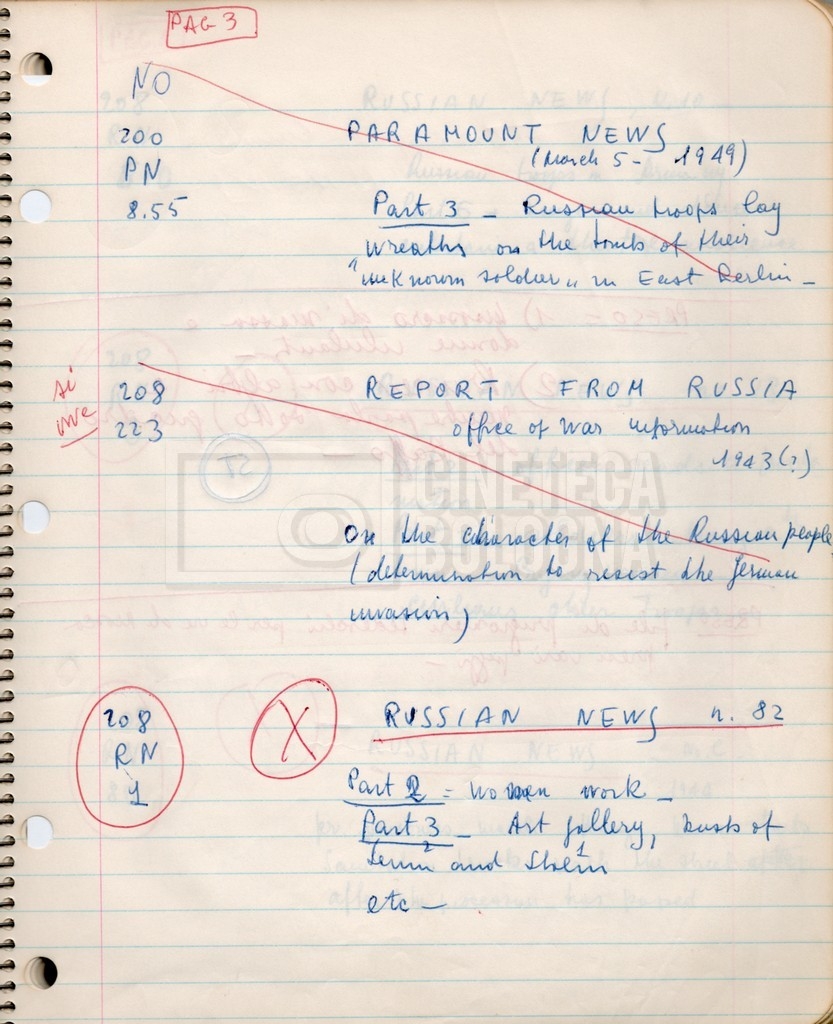 PAG 3
NO
200 PARAMOUNT NEWS
PN (March 5 - 1949)
8.55 Part 3 - Russian troops lay
wreaths on the tomb of their
"unknown soldier" in East Berlin -
si
208 REPORT FROM RUSSIA
223 office of war information
1943 (?)
CINETECA
BOLOGNA
On the character of the Russian people
(determination to resist the german
invasion)
208 X RUSSIAN NEWS n. 82
RN
1 Part 2 = women work -
Part 3 - Art gallery, busts of
Lenin 2 and Stalin 1
etc -